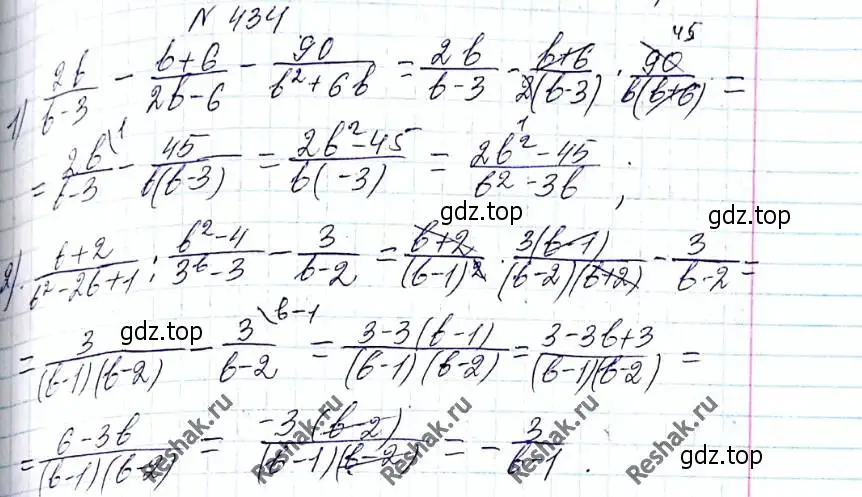 N 434
1) 2b/(b-3) - (b+6)/(2b-6) - 90/(b²+6b) = 2b/(b-3) - (b+6)/(2(b-3)) · 90/(b(b+6)) = 45
= 2b/(b-3) \1 - 45/(b(b-3)) = (2b²-45)/(b( -3)) = (2b²-45)/(b²-3b) ; 1
gdz.top
gdz.top
2). (b+2)/(b²-2b+1) : (b²-4)/(3b-3) - 3/(b-2) = (b+2)/(b-1)² · 3(b-1)/((b-2)(b+2)) - 3/(b-2) =
gdz.top
= 3/((b-1)(b-2)) - 3/(b-2) \b-1 = (3-3(b-1))/((b-1)(b-2)) = (3-3b+3)/((b-1)(b-2)) =
gdz.top
= (6-3b)/((b-1)(b-2)) = -3(b-2)/((b-1)(b-2)) = - 3/(b-1) .
Reshak.ru
Reshak.ru
Reshak.ru
Reshak.ru